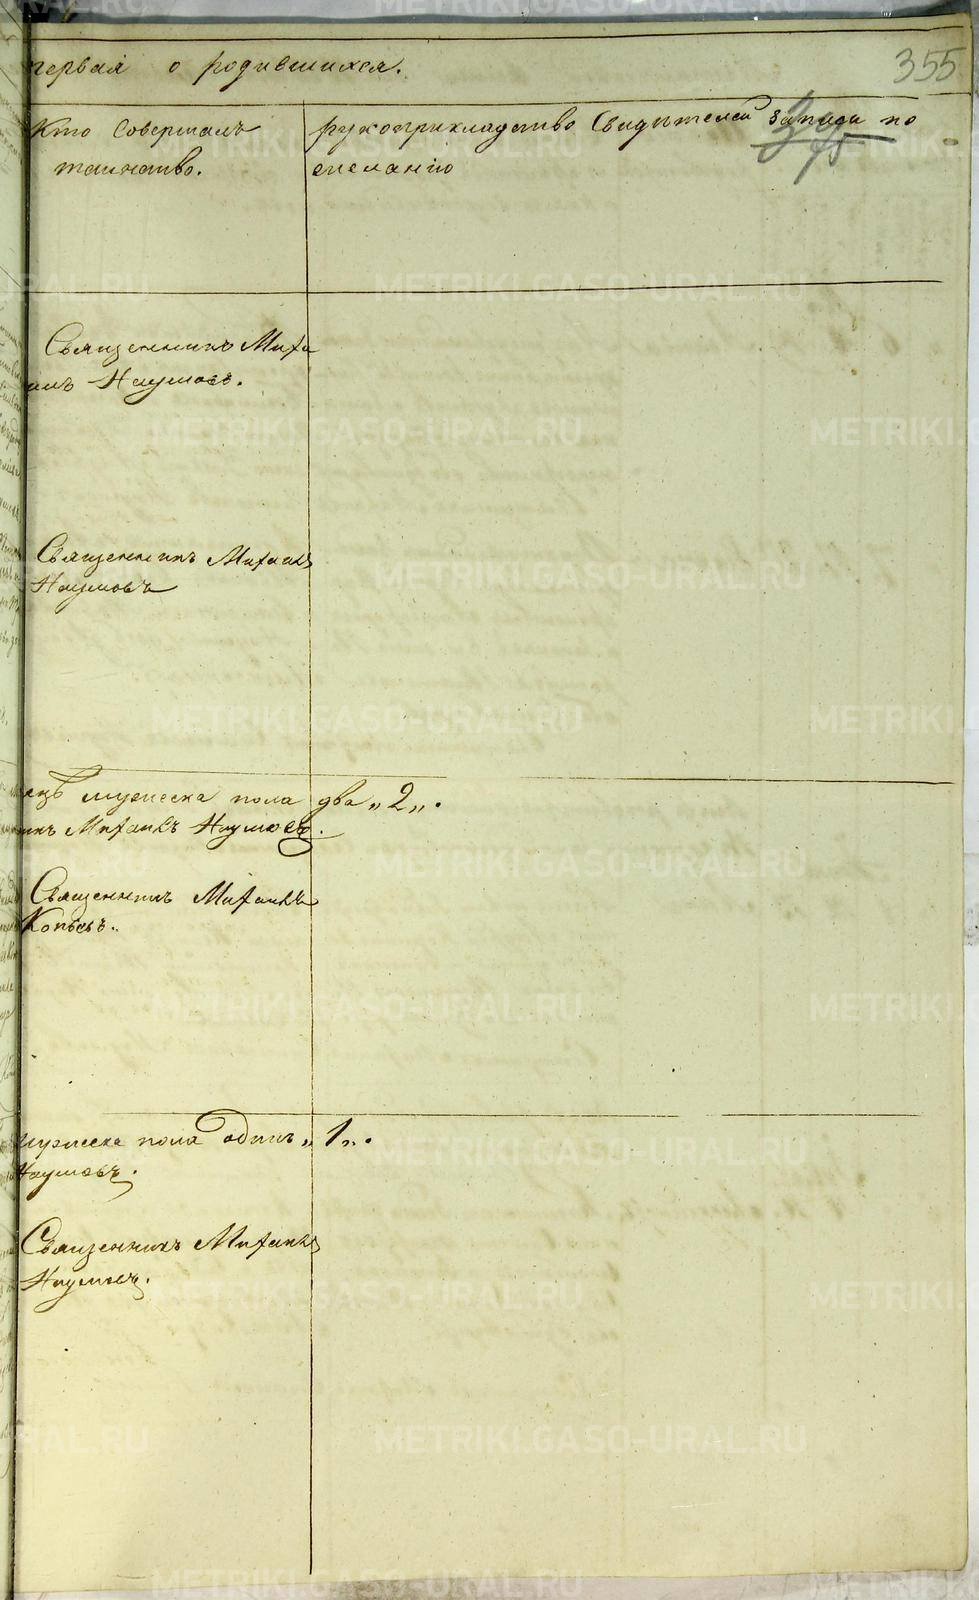 первая о родившихся.
355
Кто совершалъ
таинство.
рукоприкладство свидѣтелей записи по
желанію
Священникъ Миха
илъ Наумовъ.
Священникъ Михаилъ
Наумовъ
мужеска пола два „2„.
Михаилъ Наумовъ.
Священникъ Михаилъ
Копьевъ..
мужеска пола одинъ „1„.
Наумовъ.
Священникъ Михаилъ
Наумовъ.
METRIKI.GASO-URAL.RU